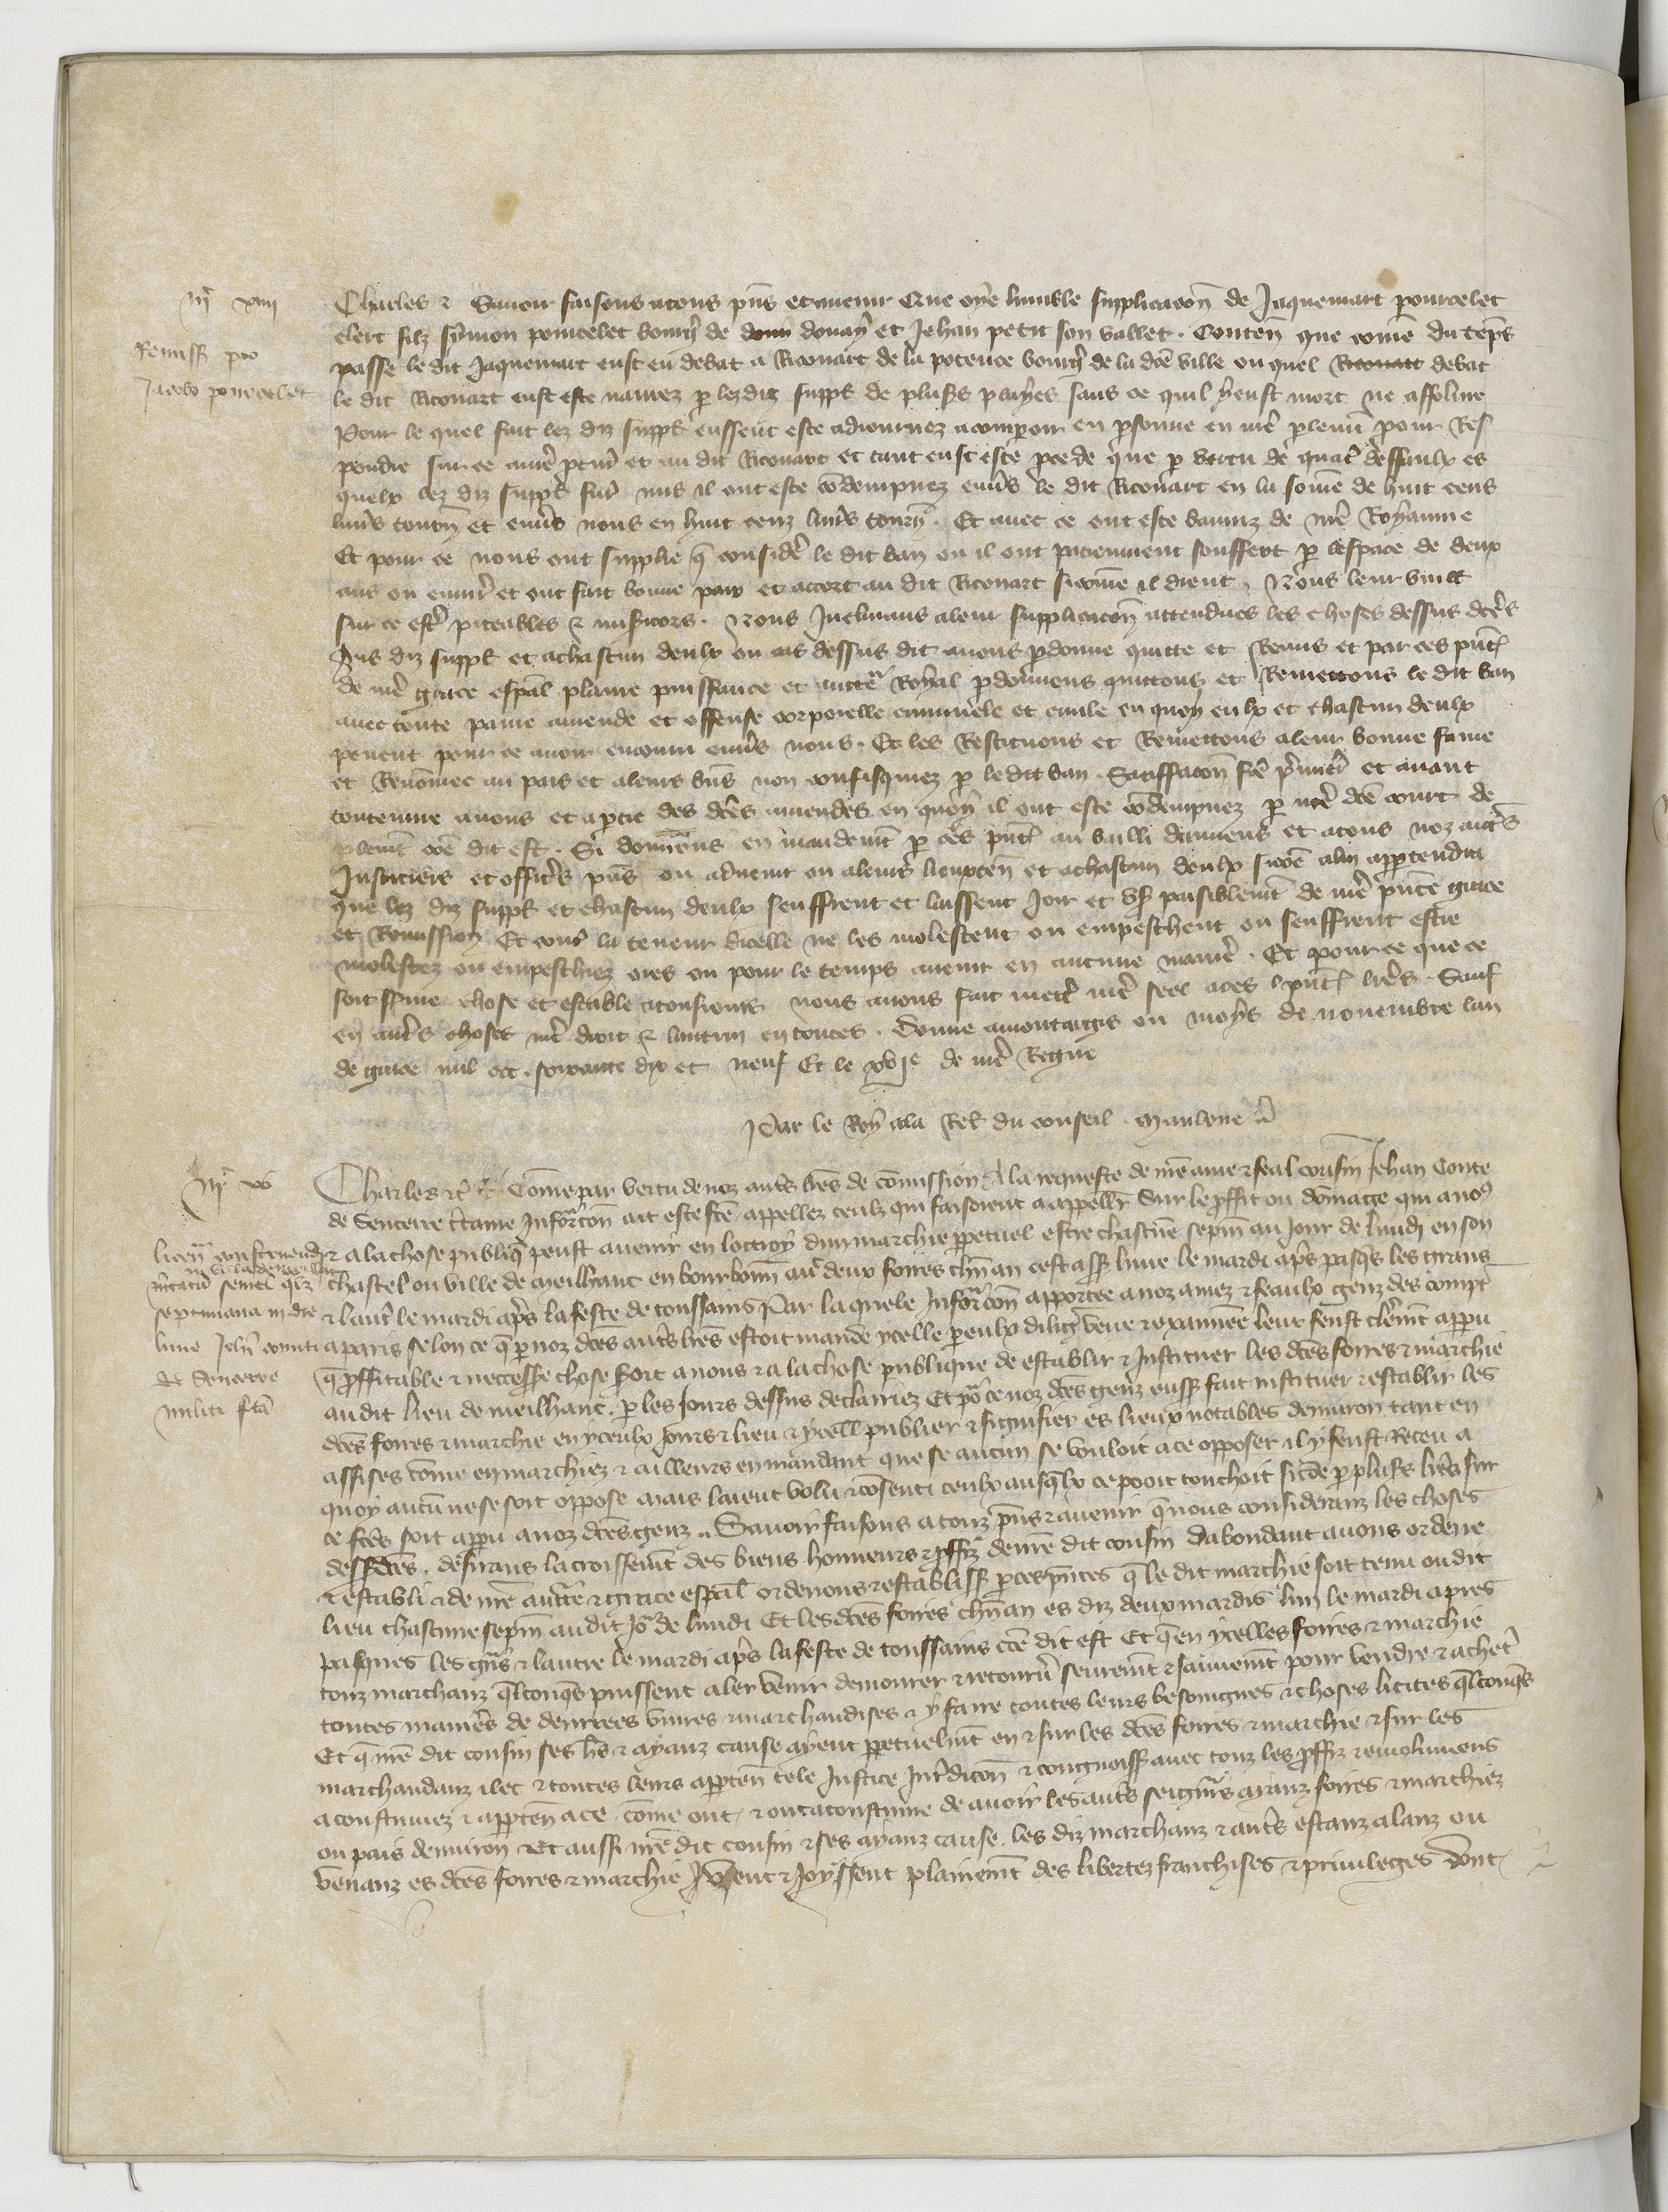 iiiᶜ xiiii
Remiss pro
Jacobo pourcelet
Charles &c Savoir faisons a tous pns et avenir Que oye lumble supplicacon de Jaquemart pourcelet
clerc filz symon pourcelet bourg de douay et Jehan petit son vallet. Conten que come du teps
passe le dit Jaquemart eust eu debat a Ricouart de la potence bourg de la dce ville ou quel Ricouart debat
le dit Ricouart eust este navrez p les diz suppl de plus playes sans ce quil y eust mort ne affolure
Pour le quel fait lez diz suppl eussent este adiournez a comparoir en psonne en nre plement pour Res
pondre sur ce a nre pcur et au dit Ricouart et tant eust este pcede que p vertu de quatre deffaulx es
quelx lez diz suppl fur mis il ont este codempnez envs le dit Ricouart en la some de huit cens
livrs tourn et envs nous en huit cenz livrs tourn. Et avec ce ont este banniz de nre Royaume
Et pour ce nous ont supplie q consider le dit ban ou il ont paciemment souffert p lespace de deux
ans ou envir et ont fait bonne paix et accort au dit Ricouart si come il dient, Nous leur vuill
sur ce estre piteables & misicors. Nous Inclinans a leur supplicacon attendues les choses dessus dces
Aus diz suppl et a chascun deulx ou cas dessus dit avons pdonne quitte et Remis et par ces pnt
de nre grace espal plaine puissance et auctte Royal pdonnens quittons et Remettons le dit ban
avec toute paine amende et offense corporelle criminele et civile en quoy eulx et chascun deulx
pevent pour ce avoir encouru envs nous. Et les Restituons et Remettons a leur bonne fame
et Renomee au pais et a leurs bns non confisquiez p le dit ban. Satiffacon fce pmier et avant
toute euvre a nous et a ptie des dces amendes en quoy il ont este codempnez p nre dce court de
plement coe dit est. Si donnens en mandemt p ces pnt au bailli damiens et a tous noz autrs
Justiciers et officrs pns ou advenir ou a leurs lieuxten et a chascun deulx si coe a lui apptendra
que lez diz suppl et chascun deulx seuffrent et laissent Joir et us paisiblemt de nre pnte grace
et Remission Et contr la teneur dicelle ne les molestent ou empeschent ou seuffrent estre
molestez ou empeschiez ores ou pour le temps avenir en aucune manier. Et pour ce que ce
soit ferme chose et estable a tousiours nous avons fait mettr nre seel a ces pnt lettrs. Sauf
en autrs choses nre droit & lautruy en toutes. Donne a montargis ou moys de novembre lan
de grace mil ccc. soixante dix et neuf Et le xvjᵉ de nre Regne
Par le Roy a la Rel du conseil
iiiᶜ xv
Charles &c Come par vertu de noz autrs lres de comission A la requeste de nre ame & feal cousin Jehan Conte
de Sencerre ctaine Inforcon ait este fce appellez ceulz qui faisoient a appell Sur le pffit ou domage qui a nos
& a la chose publiq peust avenir en lottroy dun marchie ppetuel estre chascue sepm au Jour de lundi en son
chastel ou ville de meilhanc en bourbonn avec deux foires chun an cest ass lune le mardi aps pasqs les grans
& lautre le mardi aps la feste de toussains Par laquele Inforcon apportee a noz amez & feaulx genz des compt
a paris selon ce q p noz dces autrs lres estoit mande ycelle p eulx dilig veue & examinee leur feust clermt apparu
q pffitable & neccess chose seroit a nous & a la chose publique de establir & Instituer les dces foires & marchie
au dit lieu de meilhanc. p les Jours dessus declairiez Et po ce noz dces genz euss fait instituer & establir les
dces foires & marchie en yceulx Jours & lieu & ycell publier & signifier es lieux notables denviron tant en
assises come en marchiez & ailleurs en mandant que se aucun se vouloit a ce opposer il y feust Receu a
quoy aucun ne se soit oppose mais laient volu & consenti ceulx ausqlx ce pooit touchoit si coe p plus lres sur
ce fces soit apparu a noz dces genz. Savoir faisons a touz pns & avenir q nous considerans les choses
dessdces. desirans lacroissemt des biens honneurs & pffiz de nre dit cousin dabondant avons ordene
& establi & de nre auctte & grace espal ordenons & establiss p ces pntes q le dit marchie soit tenu ou dit
lieu chascune sepm au dit Jo de lundi Et les dces foires chun an es diz deux mardis lun le mardi apres
pasques les grs & lautre le mardi aps la feste de toussains coe dit est Et q en ycelles foires & marchie
touz marchanz qlconqs puissent aler venir demourer & retourn seuremt & sauvemt pour vendre & achetr
toutes manirs de denrees vivres & marchandises & y faire toutes leurs besoingnes & choses licites qlconqs
Et q nre dit cousin ses hrs & ayanz cause ayent ppetuelmt en & sur les dces foires & marchie & sur les
marchandanz ilec & toutes leurs apparten tele Justice Jurdicon & congnoiss avec touz les pffiz & emolumens
acoustumez & apparten a ce. come ont & ont acoustume de avoir les autrs seigneurs ayanz foires & marchiez
ou pais denviron Et aussi nre dit cousin & ses ayanz cause. les diz marchanz & autrs estanz alanz ou
venanz es dces foires & marchie Usent & Joyssent plainemt des libertez franchises & privileges dont
septimana in die
lune Johi comiti
de Sencerre
militi fca